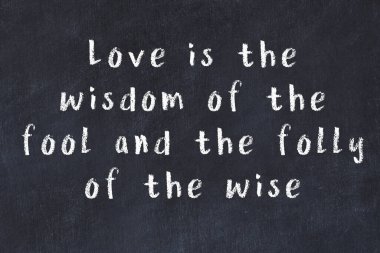 Love is the
wisdom of the
fool and the folly
of the wise